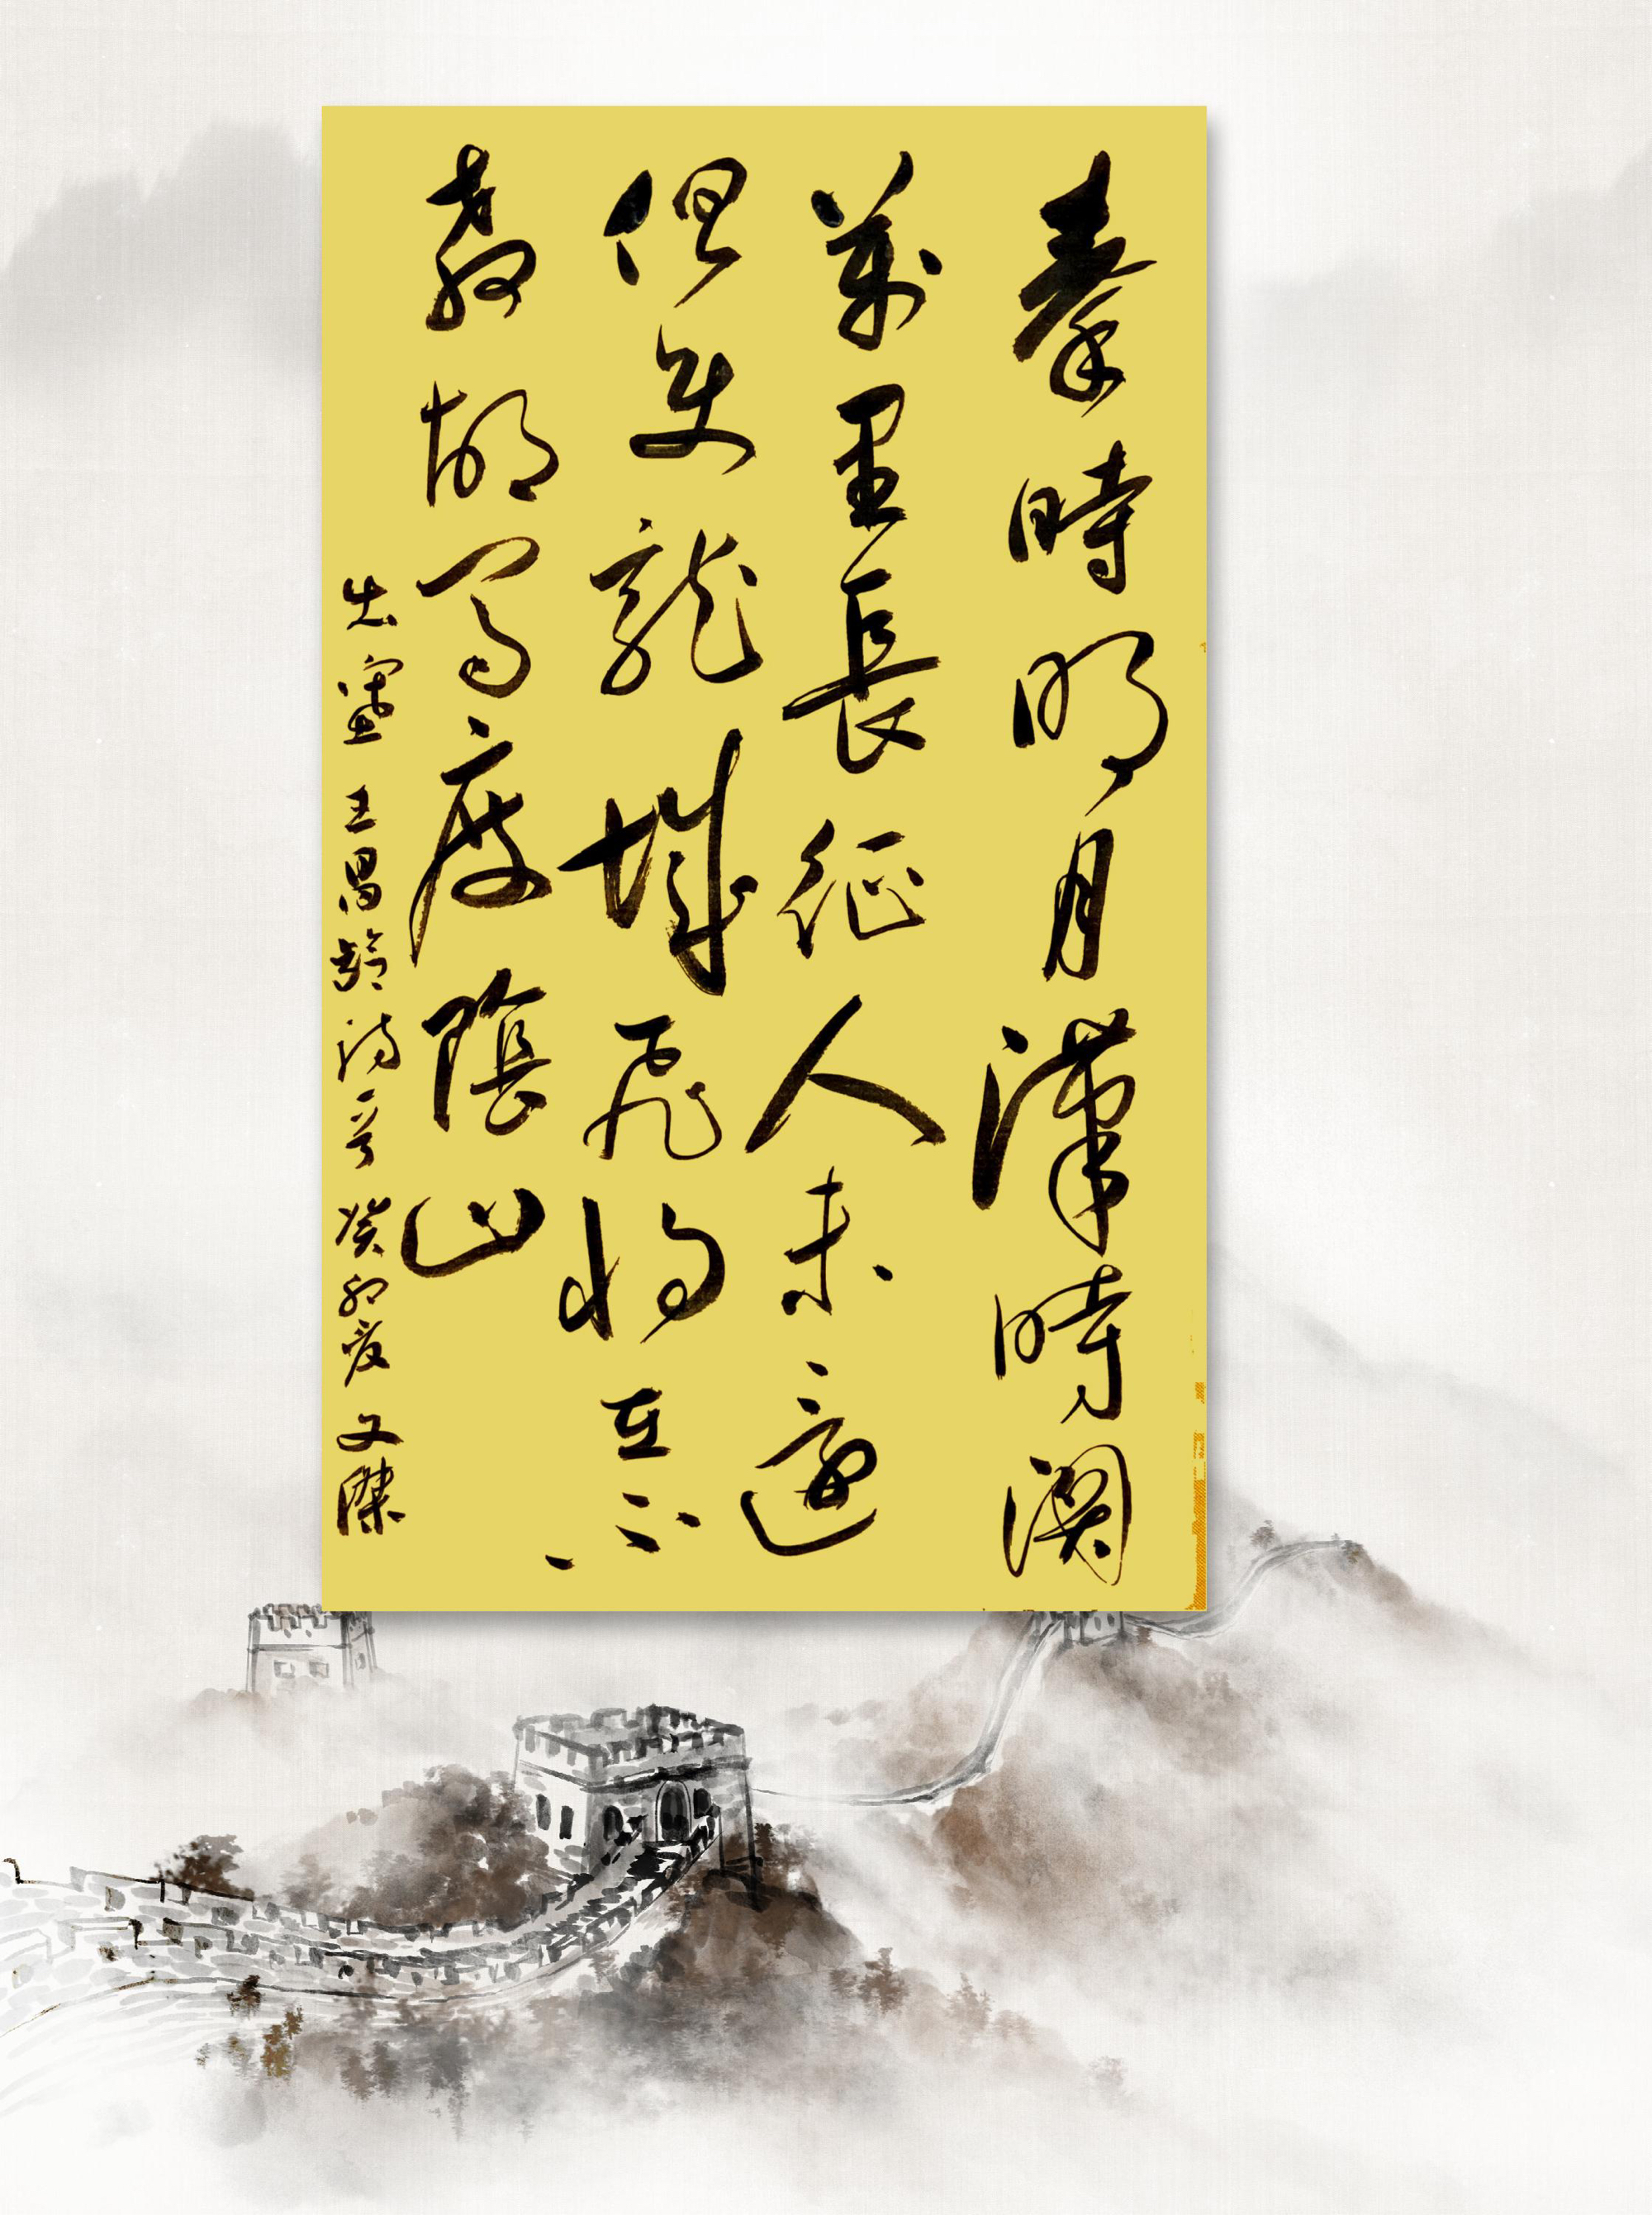 秦時明月漢時關
萬里長征人未還
但使龍城飛將在不
教胡馬度陰山
出塞 王昌齡詩一首 癸卯夏 文傑